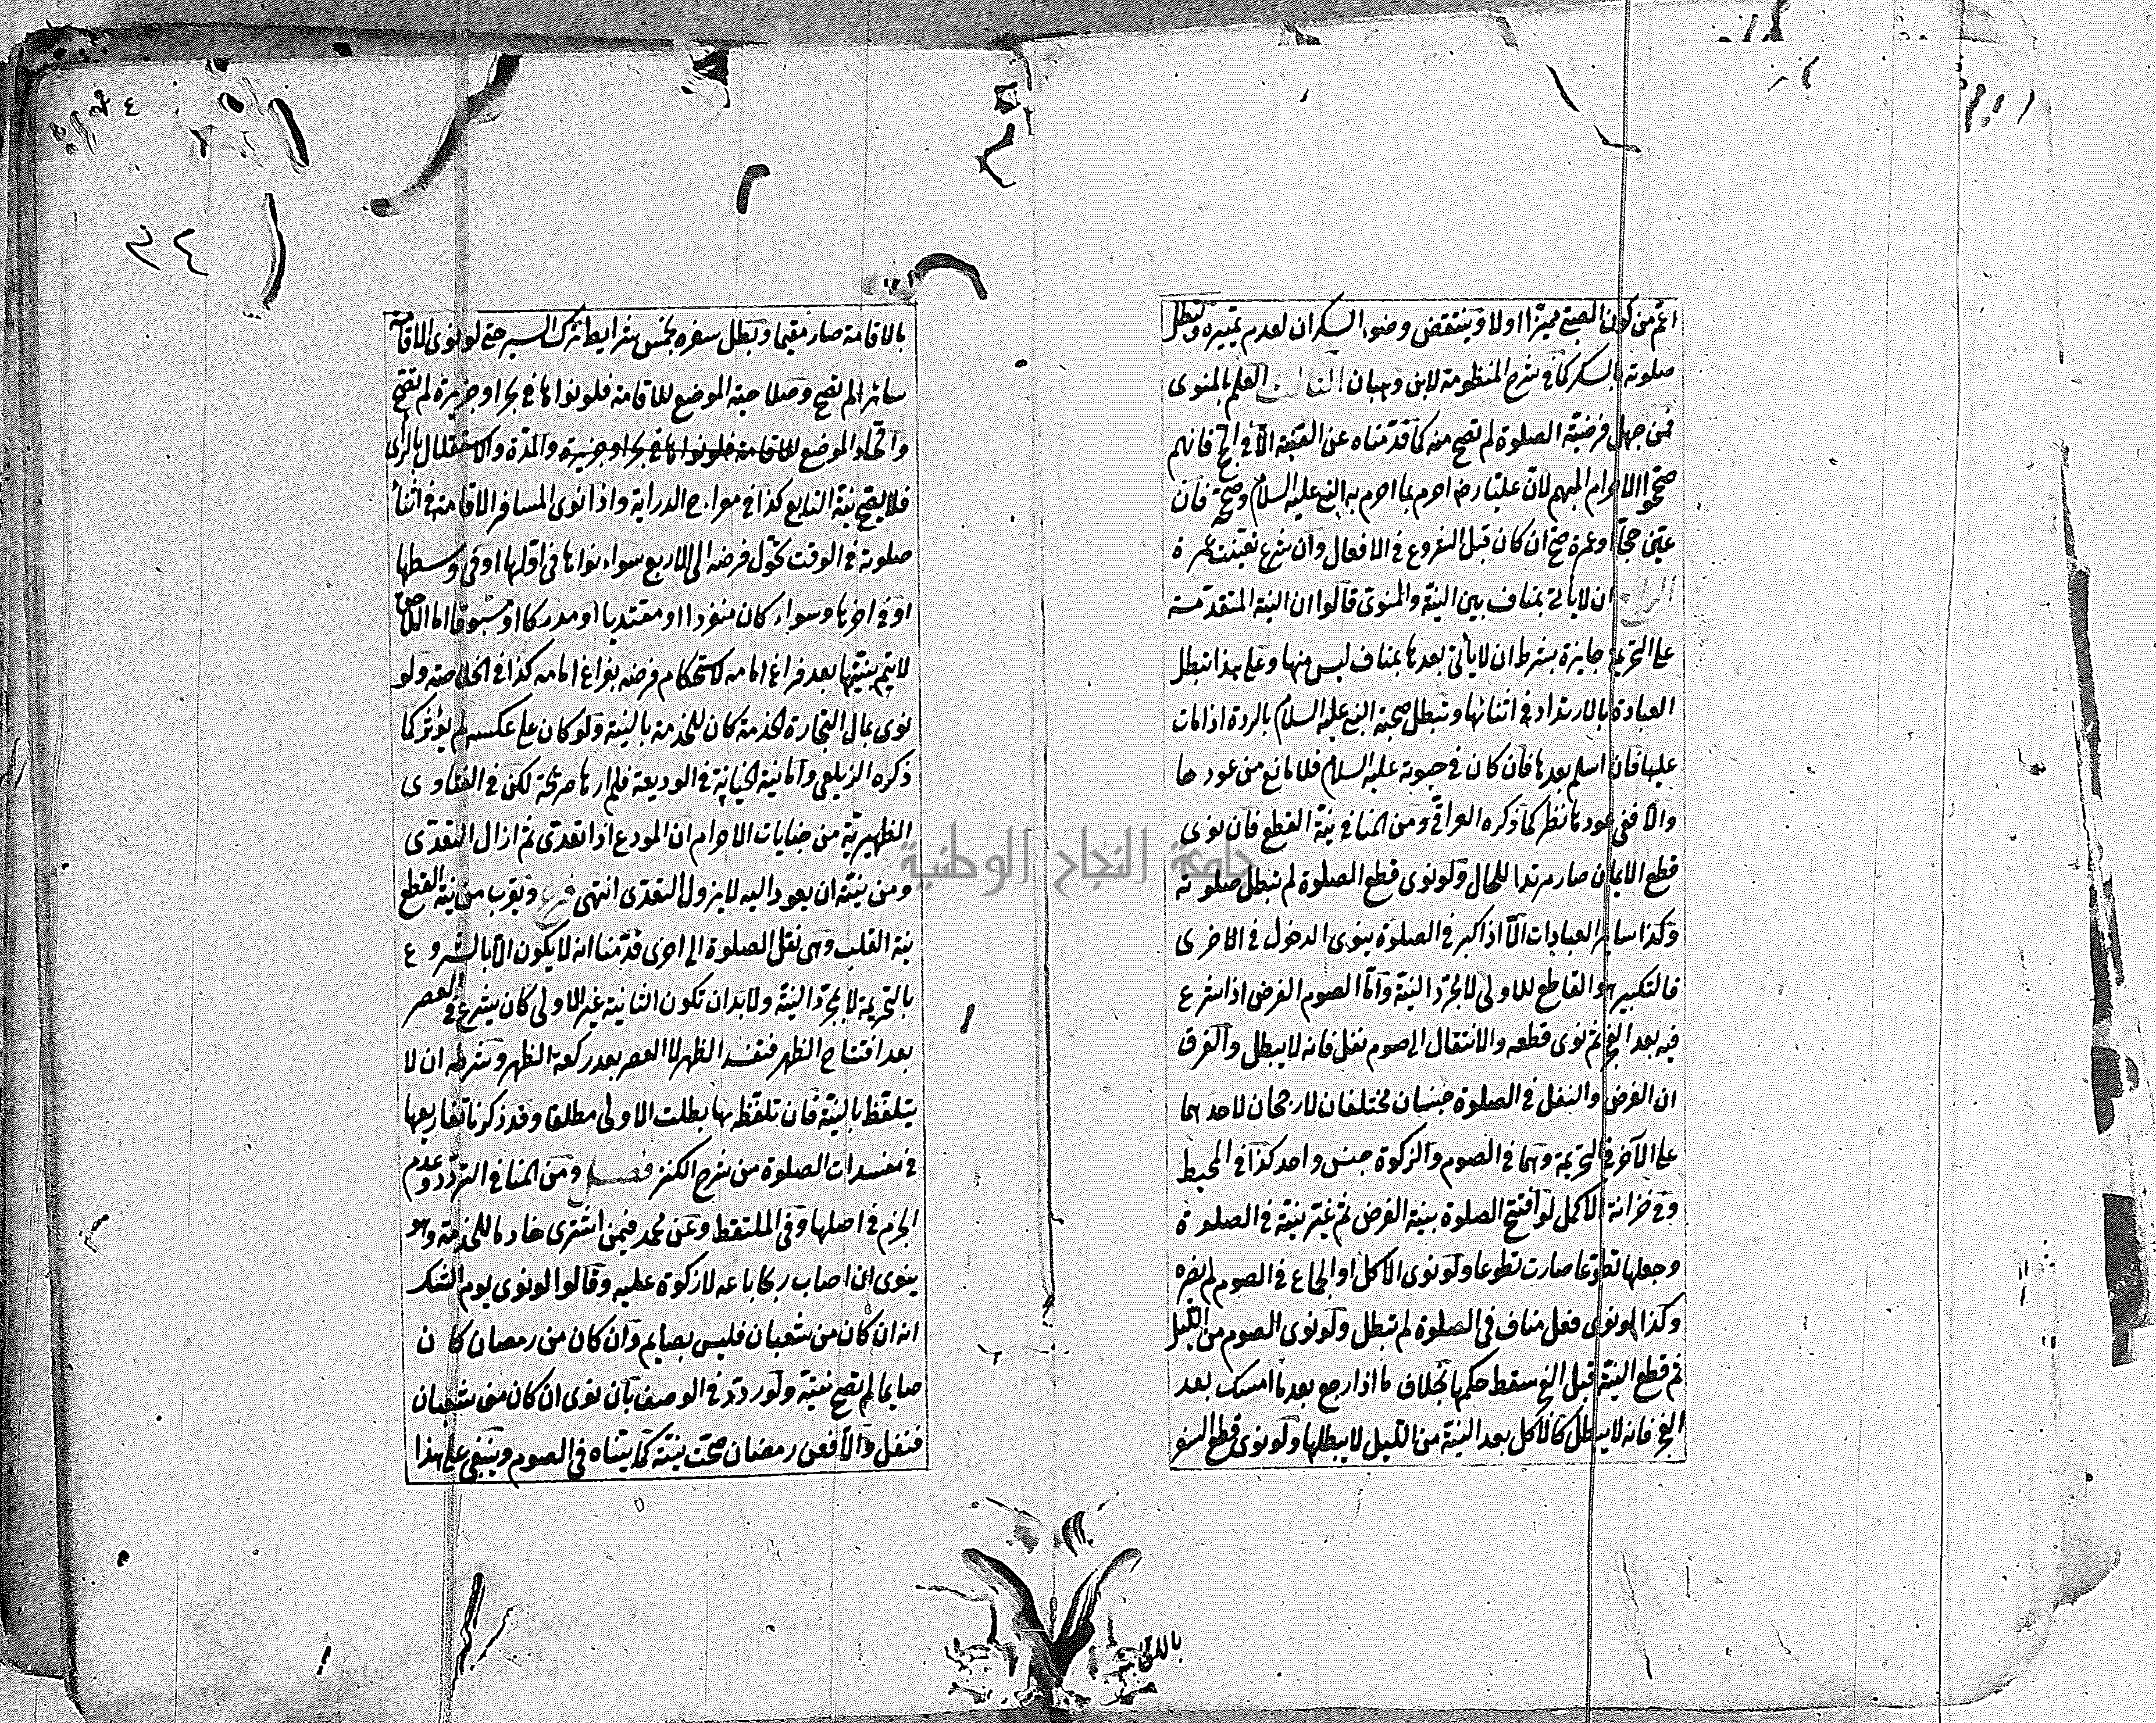 اعم من كون الصبي مميزا اولا وينتقض وضوء السكران لعدم تمييزه وتبطل
صلوته بالسكر كما في شرح المنظومة لابن وهبان الثالث العلم بالمنوى
فمن جهل فرضية الصلوة لم تصح منه كما قدمناه عن القنية الا في الحج فانهم
صححوا الاحرام المبهم لان عليا رضـ احرم بما احرم به النبي عليه السلام وصححه فان
عين حجا او عمرة صح ان كان قبل الشروع في الافعال وان شرع تعينت عمرة
الرابع ان لا ياتي بمناف بين النية والمنوى قالوا ان النية المتقدمة
على التحريمة جايزة بشرط ان لا ياتي بعدها بمناف ليس منها وعلى هذا تبطل
العبادة بالارتداد في اثنائها وتبطل صحبة النبي عليه السلام بالردة اذا مات
عليها فان اسلم بعدها فان كان في حيوته عليه السلام فلا مانع من عودها
والا ففي عودها نظر كما ذكره العراقي ومن المنافي نية القطع فان نوى
قطع الايمان صار مرتدا للحال ولو نوى قطع الصلوة لم تبطل صلوته
وكذا ساير العبادات الا اذا كبر في الصلوة ينوى الدخول في الاخرى
فالتكبير هو القاطع للاولى لا مجرد النية واما الصوم الفرض اذا شرع
فيه بعد الفجر ثم نوى قطعه والانتقال الى صوم نفل فانه لا يبطل والفرق
ان الفرض والنفل في الصلوة جنسان مختلفان لا رجحان لاحدهما
على الآخر في التحريمة وهما في الصوم والزكوة جنس واحد كذا في المحيط
وفي خزانة الاكمل لو افتتح الصلوة بنية الفرض ثم غير نيته في الصلوة
وجعلها تطوعا صارت تطوعا ولو نوى الاكل او الجماع في الصوم لم يضره
وكذا لو نوى فعل مناف في الصلوة لم تبطل ولو نوى الصوم من الليل
ثم قطع النية قبل الفجر سقط حكمها بخلاف ما اذا رجع بعد ما امسك بعد
الفجر فانه لا يبطل كالاكل بعد النية من الليل لا يبطلها ولو نوى قطع السفر
بالاقامة
بالاقامة صار مقيما وتبطل سفره بخمس شرايط ترك السير حتى لو نوى الاقامة
سائرا لم تصح وصلاحية الموضع للاقامة فلو نواها في بحر او جزيرة لم تصح
واتحاد الموضع للاقامة فلو نواها في بحر او جزيرة والمدة والاستقلال بالرأى
فلا يصح نية التابع كذا في معراج الدراية واذا نوى المسافر الاقامة في اثناء
صلوته في الوقت تحول فرضه الى الاربع سواء نواها في اولها او في وسطها
او في اخرها وسواء كان منفردا او مقتديا او مدركا او مسبوقا اما اللاحق
لا يتم بنيتها بعد فراغ امامه لاستحكام فرضه بفراغ امامه كذا في الخلاصة ولو
نوى بمال التجارة الخدمة كان للخدمة بالنية ولو كان على عكسه لم يؤثر كما
ذكره الزيلعي واما نية الخيانة في الوديعة فلم ارها صريحة لكن في الفتاوى
الظهيرية من جنايات الاحرام ان المودع اذا تعدى ثم ازال التعدى
ومن نيته ان يعود اليه لا يزول التعدى انتهى فرع ويقرب من نية القطع
نية القلب وهى نقل الصلوة الى اخرى قدمنا انه لا يكون الا بالشروع
بالتحريمة لا بمجرد النية ولا بد ان تكون الثانية غير الاولى كان يشرع في العصر
بعد افتتاح الظهر فتفسد الظهر لا العصر بعد ركعة الظهر وشرطه ان لا
يتلفظ بالنية فان تلفظ بها بطلت الاولى مطلقا وقد ذكرنا تفاريعها
في مفسدات الصلوة من شرح الكنز فصل ومن المنافي التردد وعدم
الجزم في اصلها وفي الملتقط وعن محمد فيمن اشترى خادما للخدمة وهو
ينوى ان اصاب ربحا باعه لا زكوة عليه وقالوا لو نوى يوم الشك
انه ان كان من شعبان فليس بصايم وان كان من رمضان كان
صايما لم تصح نيته ولو ردد في الوصف بان نوى ان كان من شعبان
فنفل والا فعن رمضان صحت نيته كما بيناه في الصوم وينبغي على هذا
٣٤
جامعة النجاح الوطنية